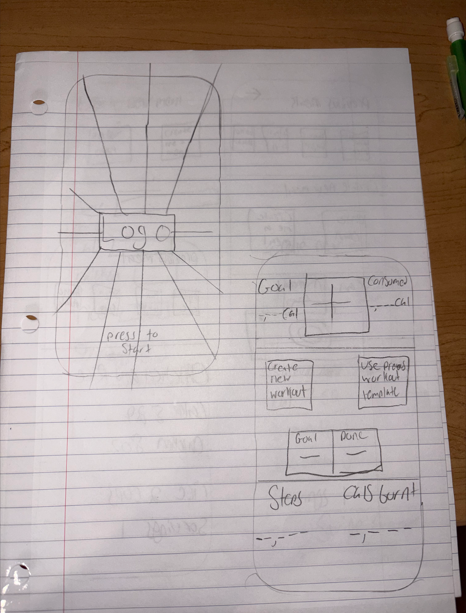 Logo
press to
start
Goal
-,--- Cal
Consumed
-,--- Cal
Create
new
workout
use
workout
template
Goal
Done
Steps
Cals burnt
-,---
-,---